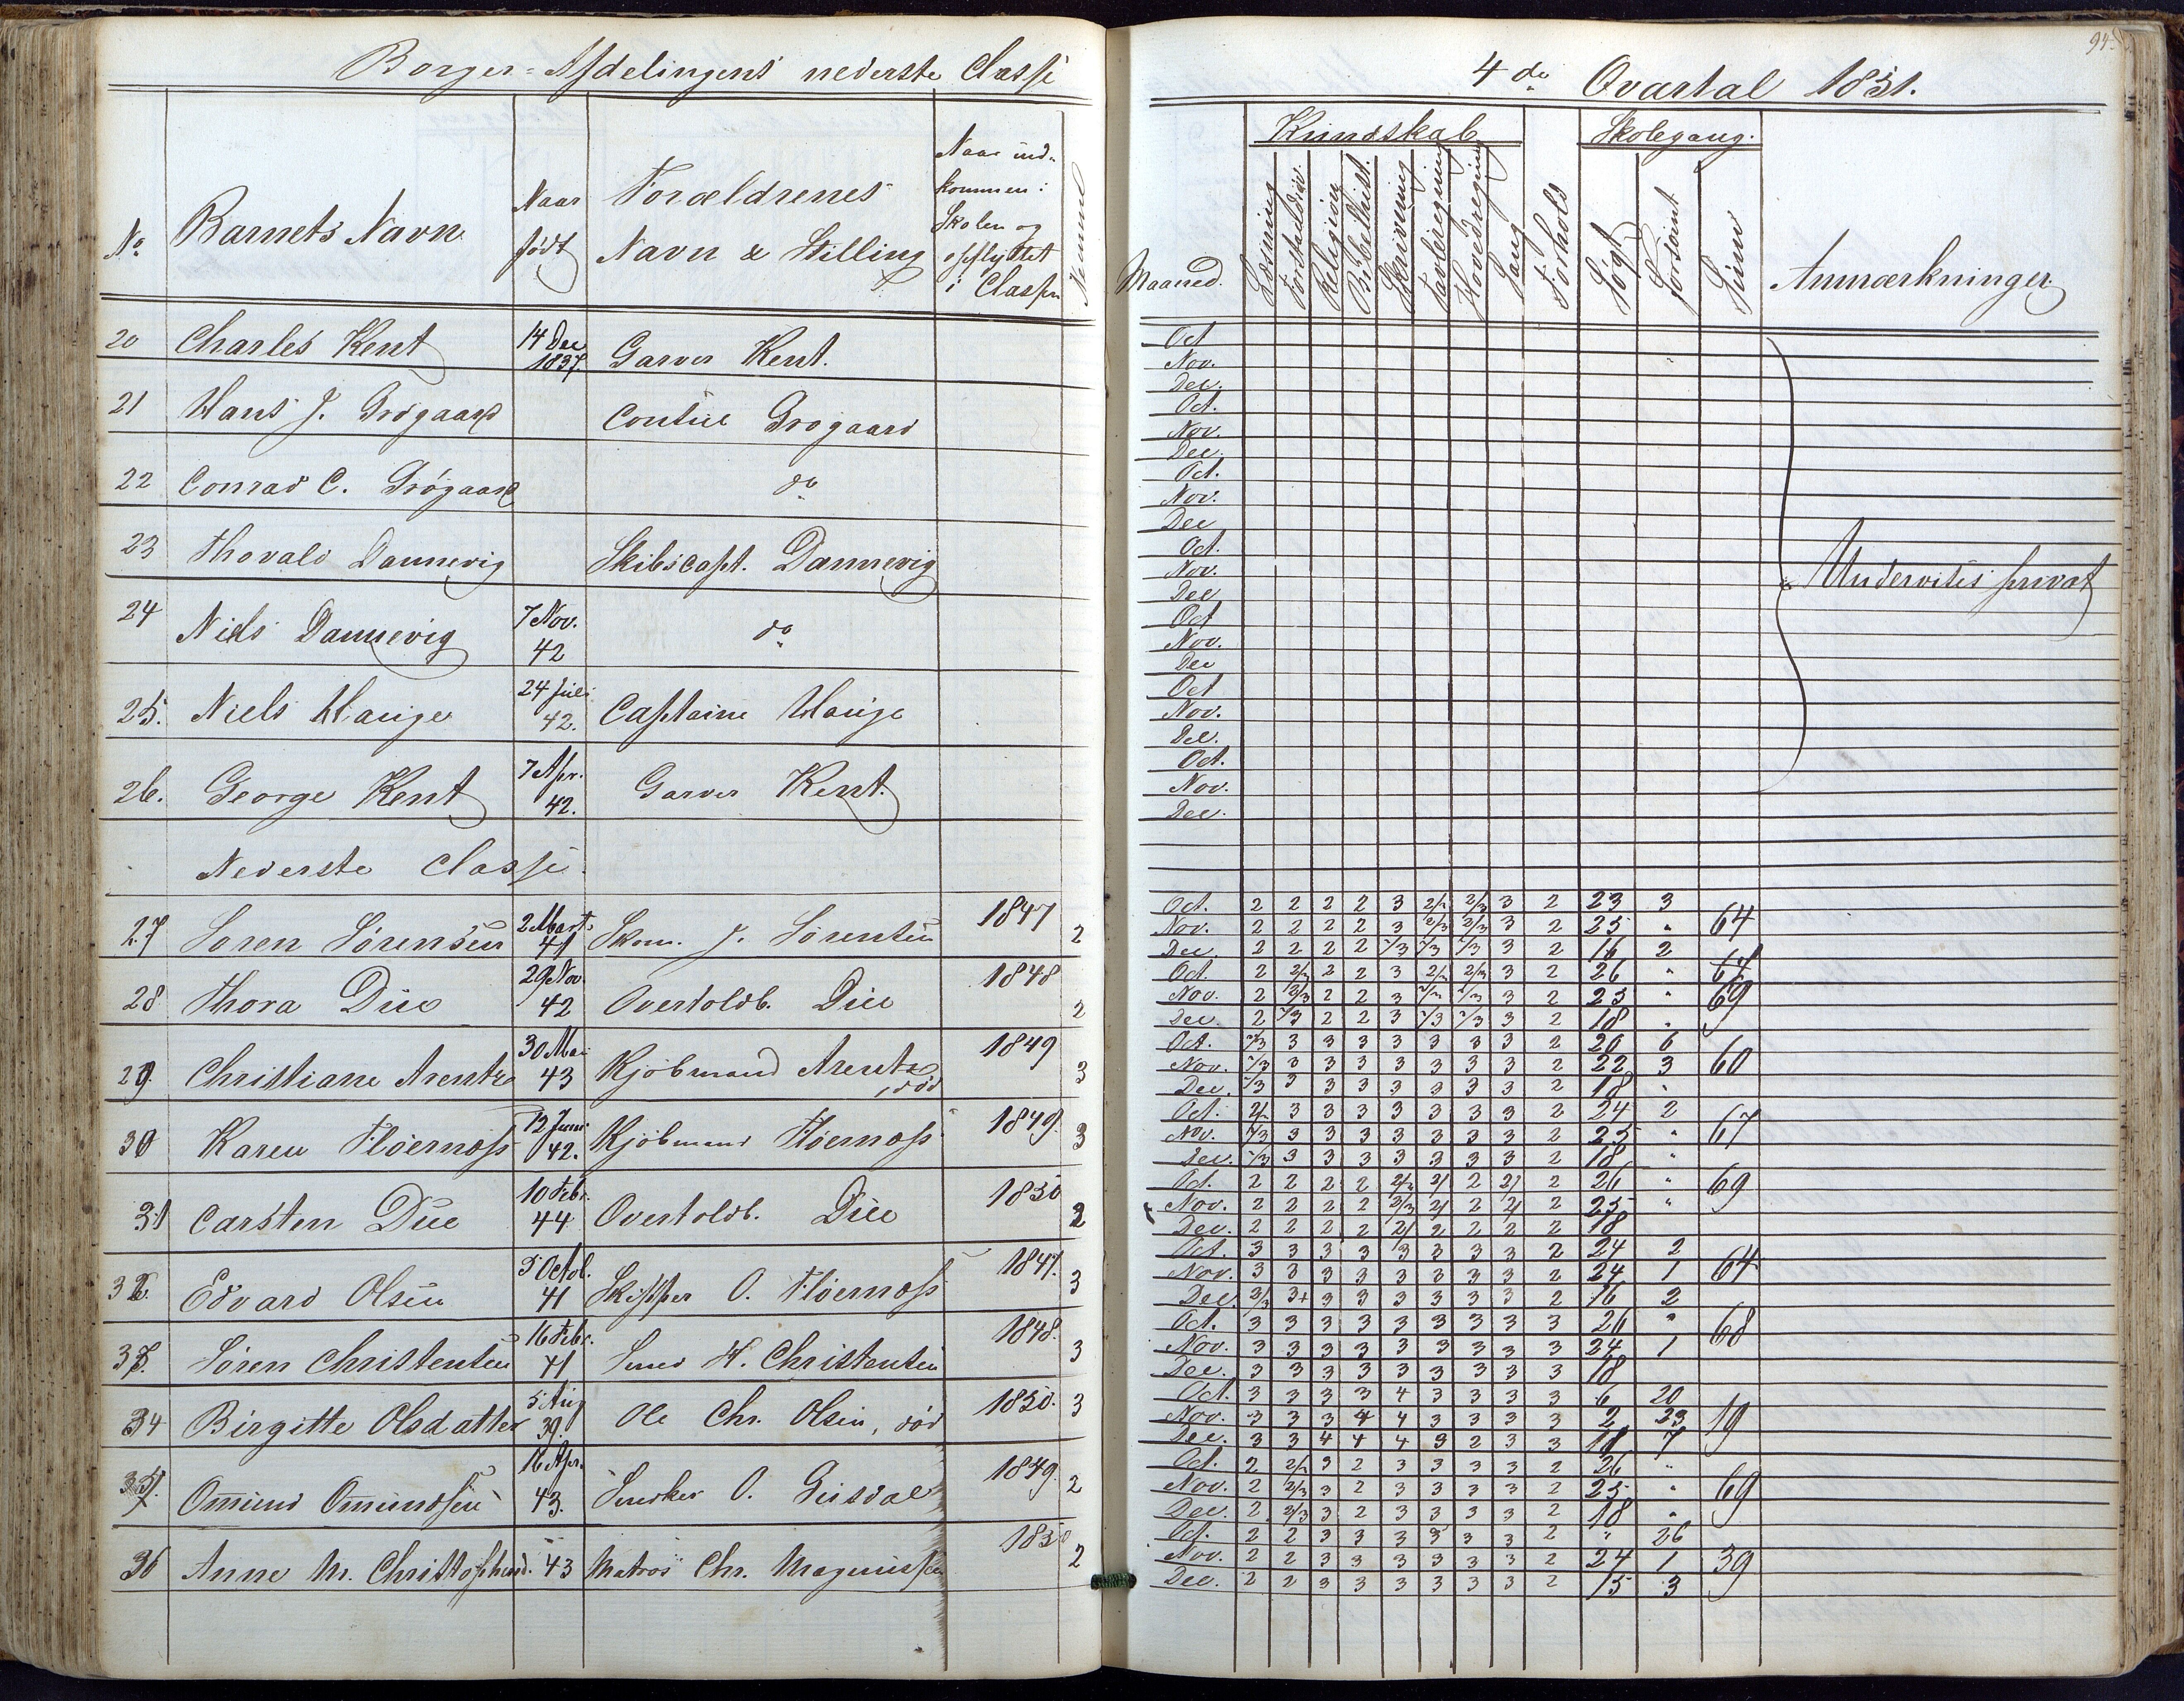 Borger-Afdelingens nederste Classe
No
Barnets Navn
Naar født
Forældrenes Navn & Stilling
Naar ind-
kommen i
Skolen og
opflyttet
i Classen
20 Charles Kent 14 Dec 1837. Garver Kent.
21 Hans J. Grøgaard Grøgaard
22 Conrad C. Grøgaard do
23 Thovald Dannevig Skibscapt. Dannevig
24 Niels Dannevig 7 Nov. 42 do
25. Niels Hauge 24 Juli 42. Captaine Hauge
26. George Kent 7 Apr. 42. Garver Kent.
Nederste Classe.
27 Søren Sørensen 2 Marts 41 Skom. J. Sørensen 1847 2
28 Thora Due 29 Nov. 42 Overtoldb. Due 1848 2
29. Christiane Arentz 30 Mai 43 Kjøbmand Arentz, død 1849 3
30 Karen Fløernæss 12 Juni 42. Kjøbmand Fløernæss 1849. 3
31 Carsten Due 10 Febr. 44 Overtoldb. Due 1850 2
32. Edvard Olsen 5 Octob. 41 Skipper O. Fløernæss 1847. 3
33. Søren Christensen 16 Febr. 41 Smed H. Christensen 1848. 3
34 Birgitte Olsdatter 5 Aug 39. Ole Chr. Olsen, død 1850. 3
35. Omund Omundsen 16 Apr. 43. Snedker O. 1849. 2
36 Anne M. Christophersd. 43 Matros Chr. Magnussen 1850 2
94.
4de Qvartal 1851.
Maaned.
Kundskab
Læsning
Religion
Bibelhist.
Skrivning
Tavleregning
Hovedregning
Sang
Forhold
Skolegang.
Søgt
Forsømt
Sum
Anmærkninger
Oct
Nov.
Dec.
Oct.
Nov.
Dec.
Oct.
Nov.
Dec
Oct.
Nov.
Dec
Oct
Nov.
Dec
Oct
Nov.
Dec.
Oct.
Nov.
Dec.
Undervises privat
Oct. 2 2 2 2 3 2/3 2/3 3 2 23 3
Nov. 2 2 2 2 3 2/3 2/3 3 2 25 " 64
Dec 2 2 2 2 2/3 2/3 2/3 3 2 16 2
Oct. 2 2/3 2 2 3 2/3 2/3 3 2 26 "
Nov. 2 2/3 2 2 3 2/3 2/3 3 2 25 " 69
Dec. 2 2/3 2 2 3 2/3 2/3 3 2 18 "
Oct. 2/3 3 3 3 3 3 3 3 2 20 6
Nov. 2/3 3 3 3 3 3 3 3 2 22 3 60
Dec. 2/3 3 3 3 3 3 3 3 2 18 "
Oct. 2/3 3 3 3 3 3 3 3 2 24 2
Nov. 2/3 3 3 3 3 3 3 3 2 25 " 67
Dec. 2/3 3 3 3 3 3 3 3 2 18 "
Oct. 2 2 2 2 2/3 2/ 2 2/ 2 26 " 69
Nov. 2 2 2 2 2/3 2/ 2 2/ 2 25 "
Dec. 2 2 2 2 2/ 2 2 2 2 18
Oct. 3 3 3 3 3 3 3 3 2 24 2
Nov. 3 3 3 3 3 3 3 3 2 24 1 64
Dec. 2/3 3+ 3 3 3 3 3 3 2 16 2
Oct. 3 3 3 3 3 3 3 3 3 26 "
Nov. 3 3 3 3 3 3 3 3 3 24 1 68
Dec. 3 3 3 3 3 3 3 3 3 18
Oct. 3 3 3 3 4 3 3 3 3 6 20
Nov. 3 3 3 4 4 3 3 3 3 2 23 19
Dec. 3 3 4 4 4 3 2 3 3 11 7
Oct. 2 2/3 3 2 3 3 3 3 2 26 "
Nov. 2 2/3 3 2 3 3 3 3 2 25 " 69
Dec. 2 2/3 3 2 3 3 3 3 2 18 "
Oct. 2 2 3 3 3 3 3 3 2 " 26
Nov. 2 2 3 3 3 3 3 3 2 24 1 39
Dec. 2 2 3 3 3 3 3 3 2 15 3